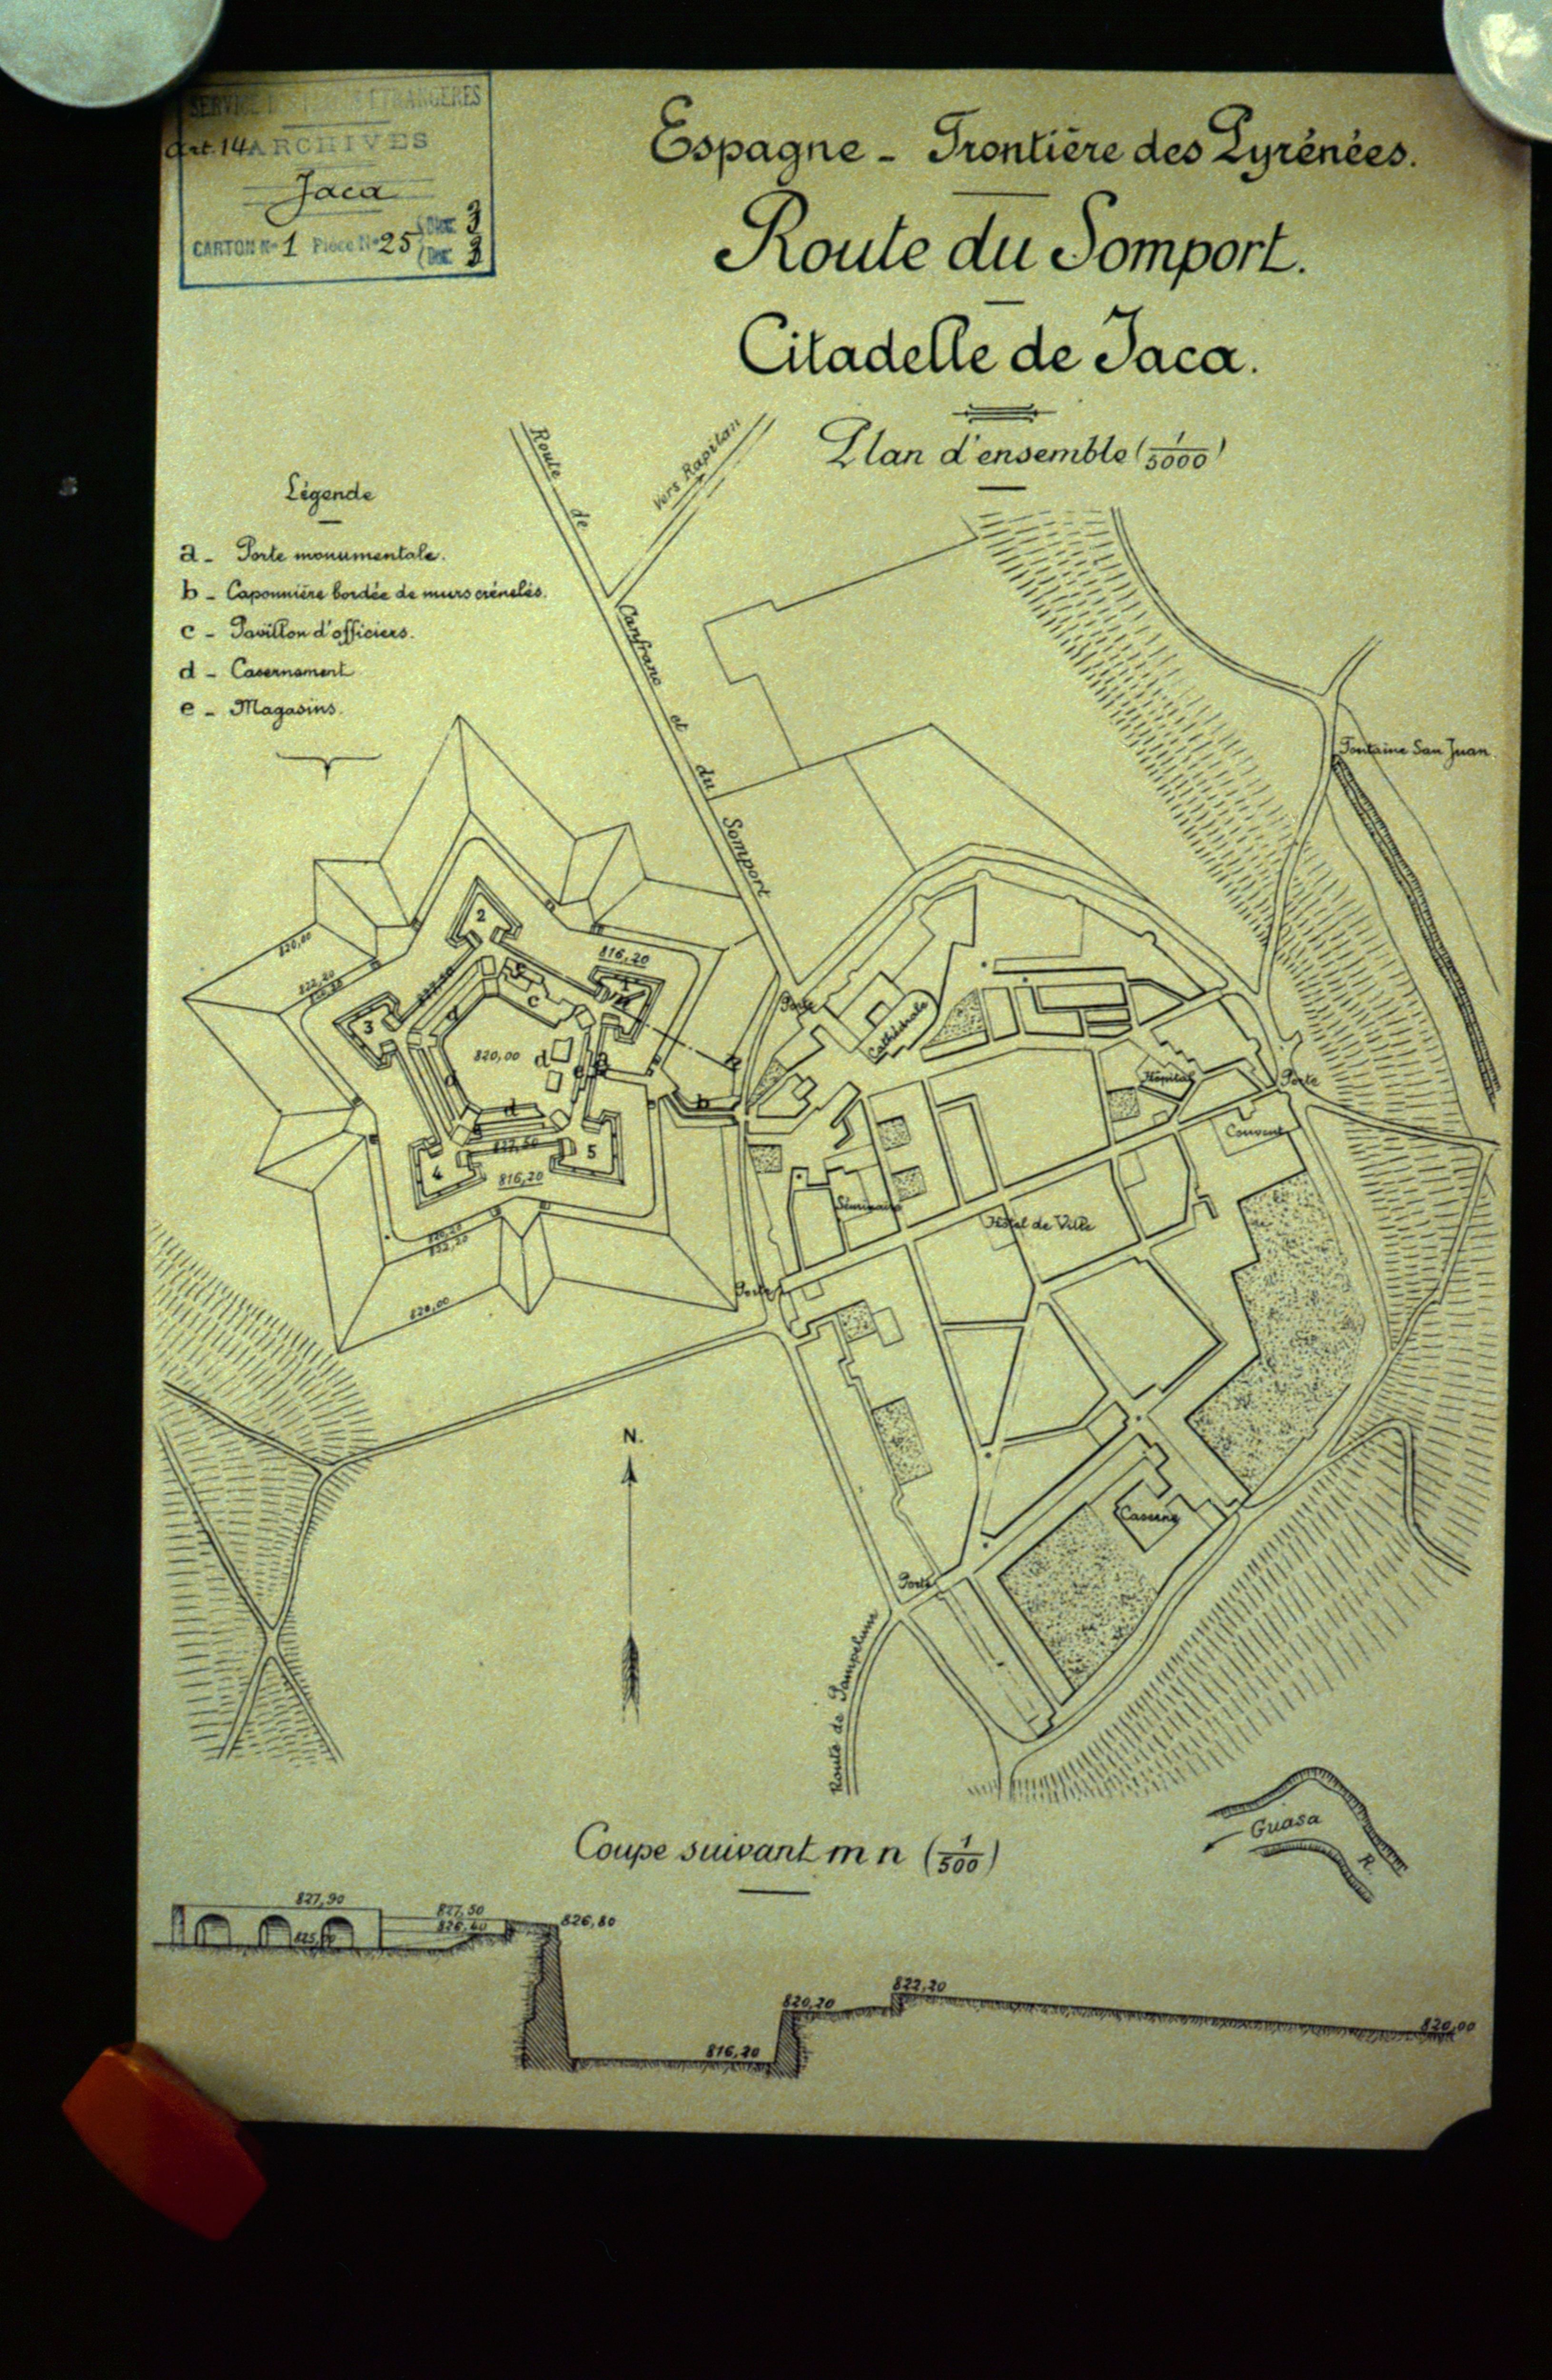 SERVICE DES ÉTRANGÈRES
Art. 14 ARCHIVES
Jaca
CARTON No 1 Pièce No 25
Espagne - Frontière des Pyrénées.
Route du Somport.
Citadelle de Jaca.
Plan d'ensemble (1/5000)
Légende
a - Porte monumentale.
b - Caponnière bordée de murs crénelés.
c - Pavillon d'officiers.
d - Casernement
e - Magasins.
Route de Canfranc et du Somport
Vers Rapitan
Fontaine San Juan
820,00
822,20
816,20
2
1
3
c
820,00
d
a
e
n
b
d
4
5
816,20
822,20
820,00
Porte
Cathédrale
Hôpital
Porte
Couvent
Séminaire
Hôtel de Ville
Porte
Caserne
Porte
N.
Route de Pampelune
Guasa
R.
Coupe suivant m n (1/500)
827,90
827,50
826,40
826,80
822,20
820,20
820,00
816,20